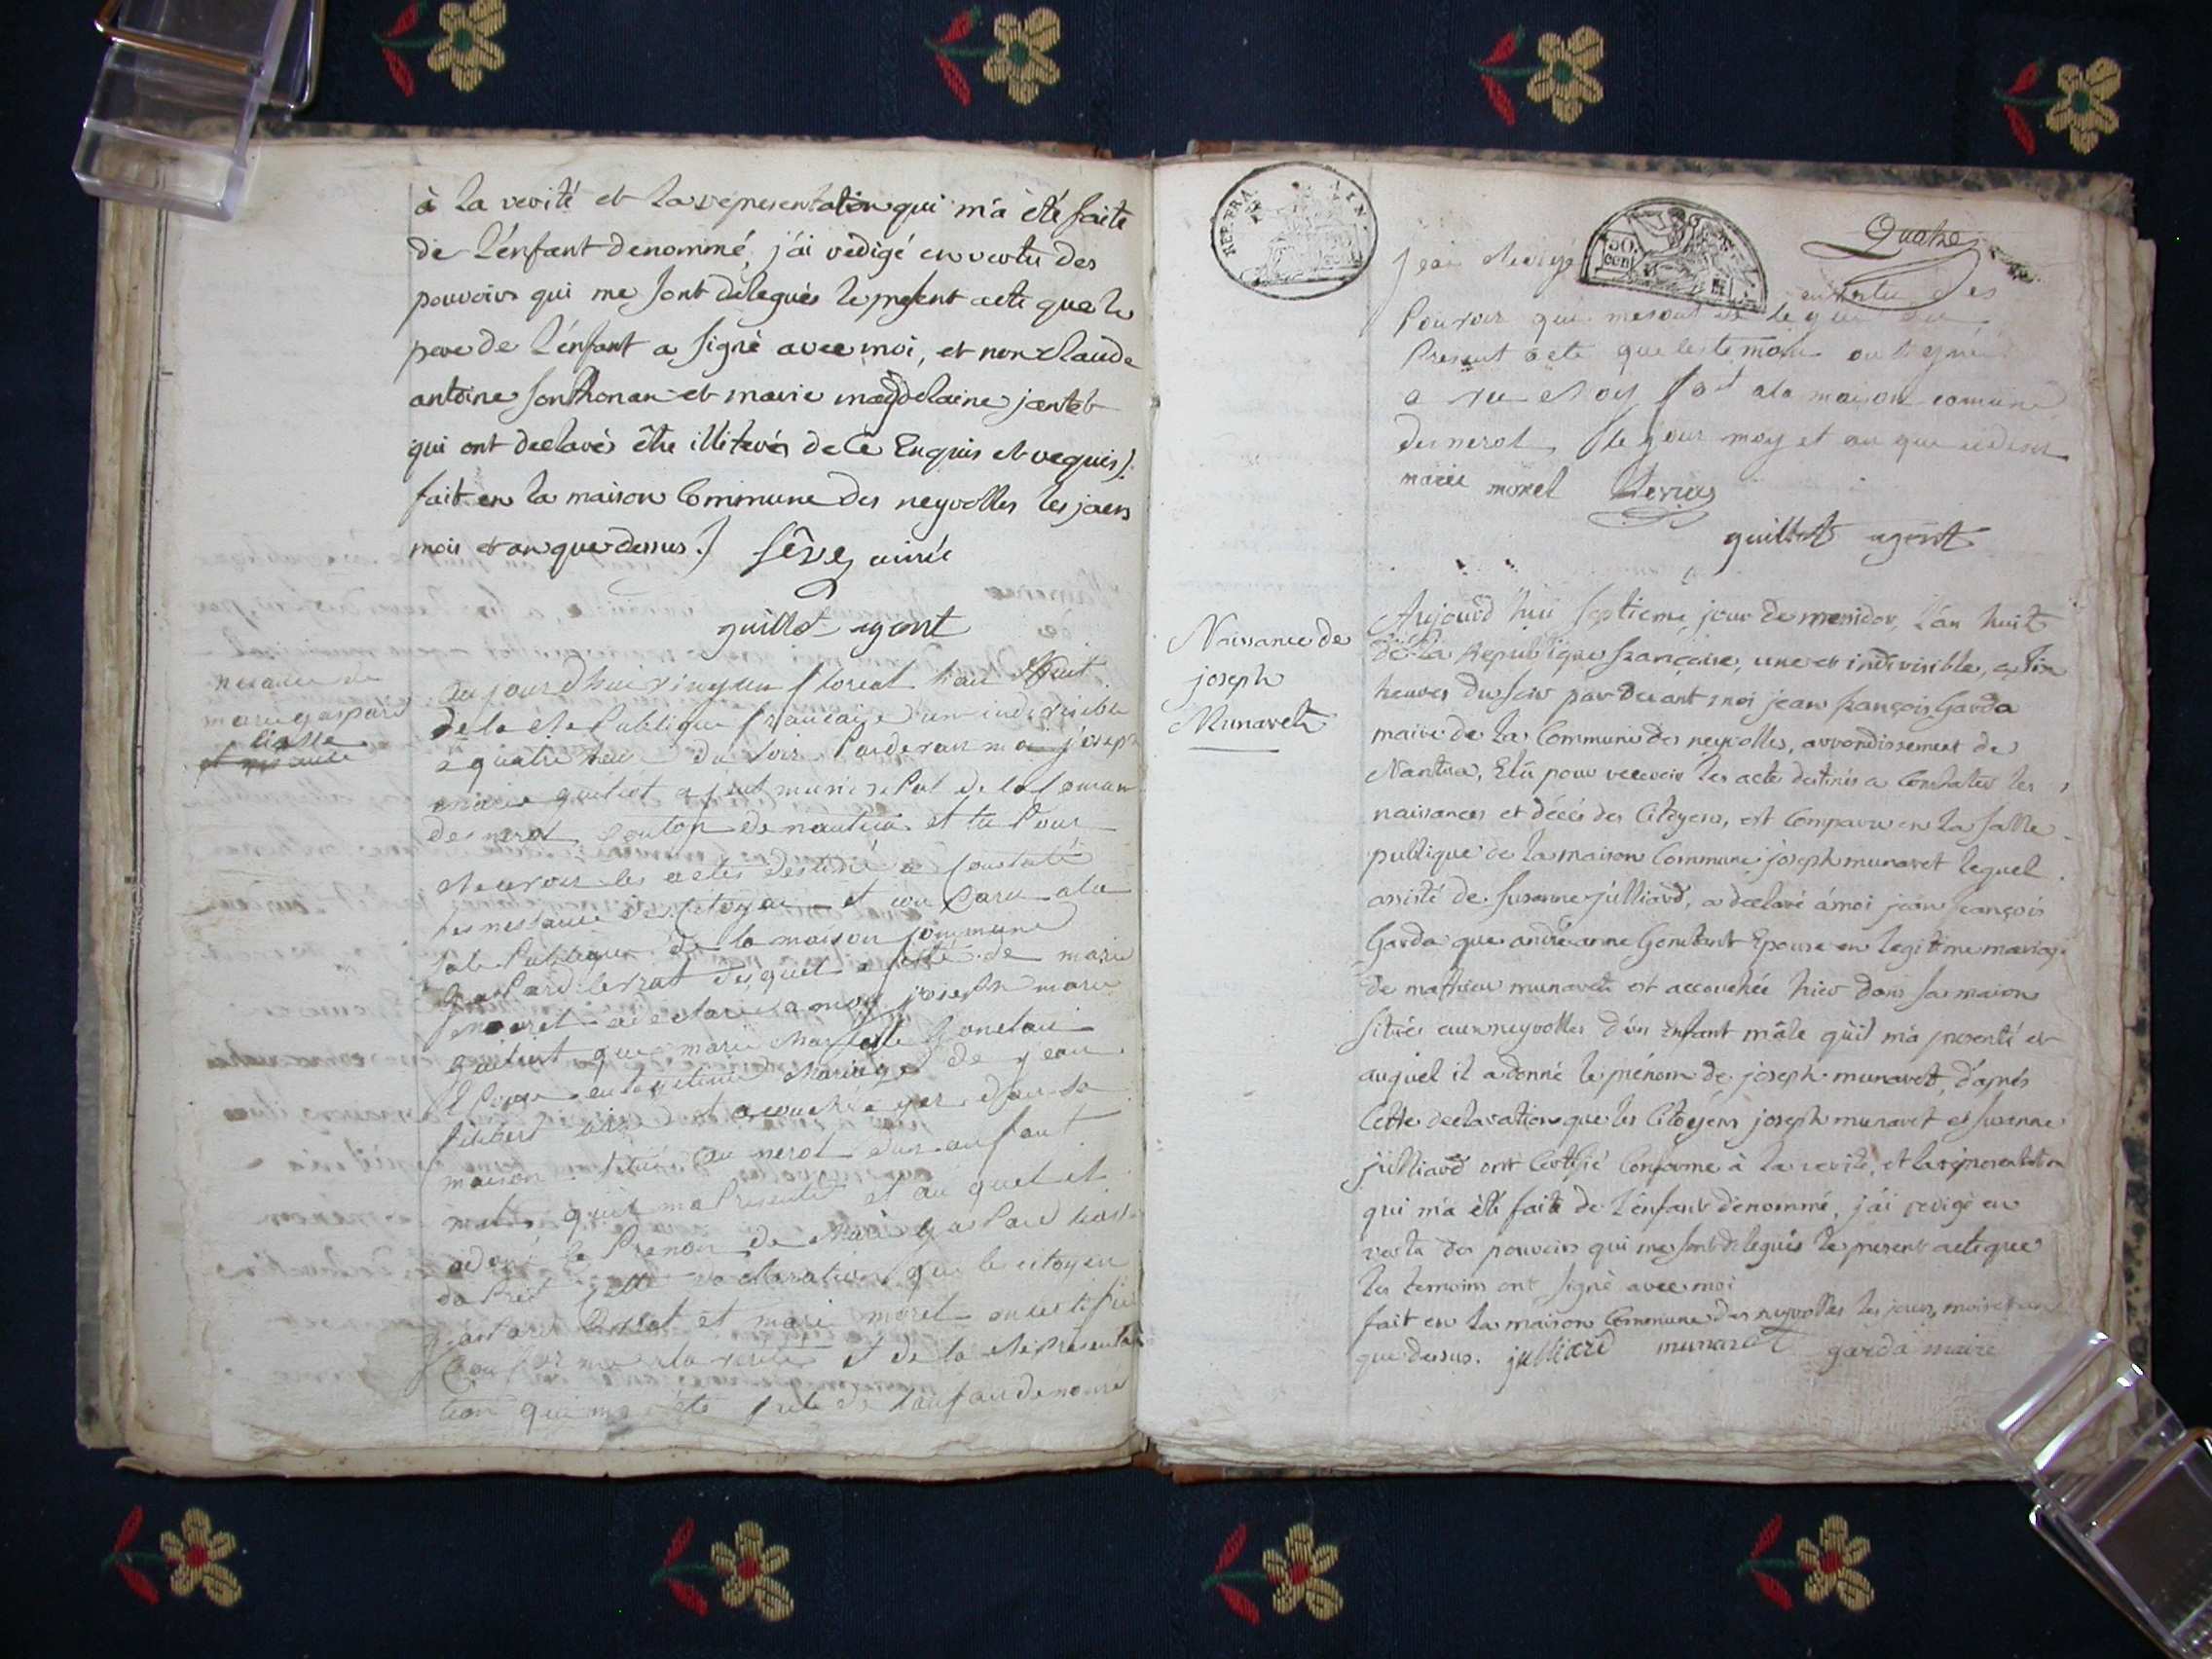 à la verité et la representation qui m'a été faite
de l'énfant denommé, j'ai rédigé en vertu des
pouvoirs qui me sont délegués le present acte que le
pere de l'énfant a signé avec moi, et non claude
antoine sonthonax et marie magdelaine jantet
qui ont declarés être illiterés de ce Enquis et requis).
fait en la maison Commune des neyrolles les jours
mois et an que dessus.) sêve, ainée
guillot agent
nesance de
marie gaspard
aujourd'hui vingt un floreal l'an huit
de la Republique francaise une indivisible
à quatre heure du soir Parderant moi joseph
marie guillot agent municipal de la Comun
des nerol Canton de nantua et lu Pour
Recevoir les actes destiné a Constaté
les nesance des Citoyen et con Paru a la
sale Publique de la maison Commune
gasPard lerat lequel asisté de marie
morel a declaré a moy joseph marie
guillot que marie
EPouse en legitime Mariage de jean
acouchée yer dan sa
maison situé au nerol d'un anfant
male qu'il ma Presenté et au quel il
a doné le Prenon de Marie gasPard
daPrés cette declaration que le citoyen
gasPard et marie morel on certifié
Conforme a la verité et de la Représenta
tion qui ma été faite de l'anfan denomé
REP. FRA. AIN.
50. cent.
Quatre
j'ai redigé en vertu des
Pouvoir qui me sont
Present acte que le témoin ou signé
a la maison comune
des nerol le jour moy et an que cidesu
marie morel
guillot agent
Naissance de
joseph
Munaret
Aujourd'hui septieme jour de messidor, l'an huit
de la Republique francaise, une et indivisible, a six
heures du soir par devant moi jean françois Garda
maire de la Commune des neyrolles, arrondissement de
Nantua, Elû pour recevoir les actes destinés a Constater les
naissances et décés des Citoyens, est Comparu en la salle
publique de la maison Commune joseph munaret lequel
assisté de susanne julliard, a declaré à moi jean françois
Garda que andréanne Gonitant Epouse en legitime mariage
de mathieu munaret est accouchée hier dans sa maison
située aux neyrolles d'un enfant mâle qu'il m'a presenté et
auquel il a donné le prénom de joseph munaret, d'aprés
Cette declaration que les Citoyens joseph munaret et susanne
julliard ont Certifié Conforme à la verité, et la representation
qui m'a été faite de l'énfant dénommé, j'ai redigé en
vertu des pouvoirs qui me sont delegués le present acte que
les temoins ont signé avec moi
fait en la maison Commune des neyrolles les jours, mois et an
que dessus. julliard munaret garda maire